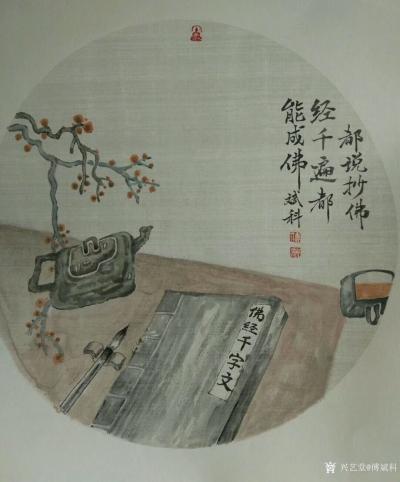 都说抄佛
经千遍都
能成佛
斌科
佛经千字文
兴艺堂@傅斌科